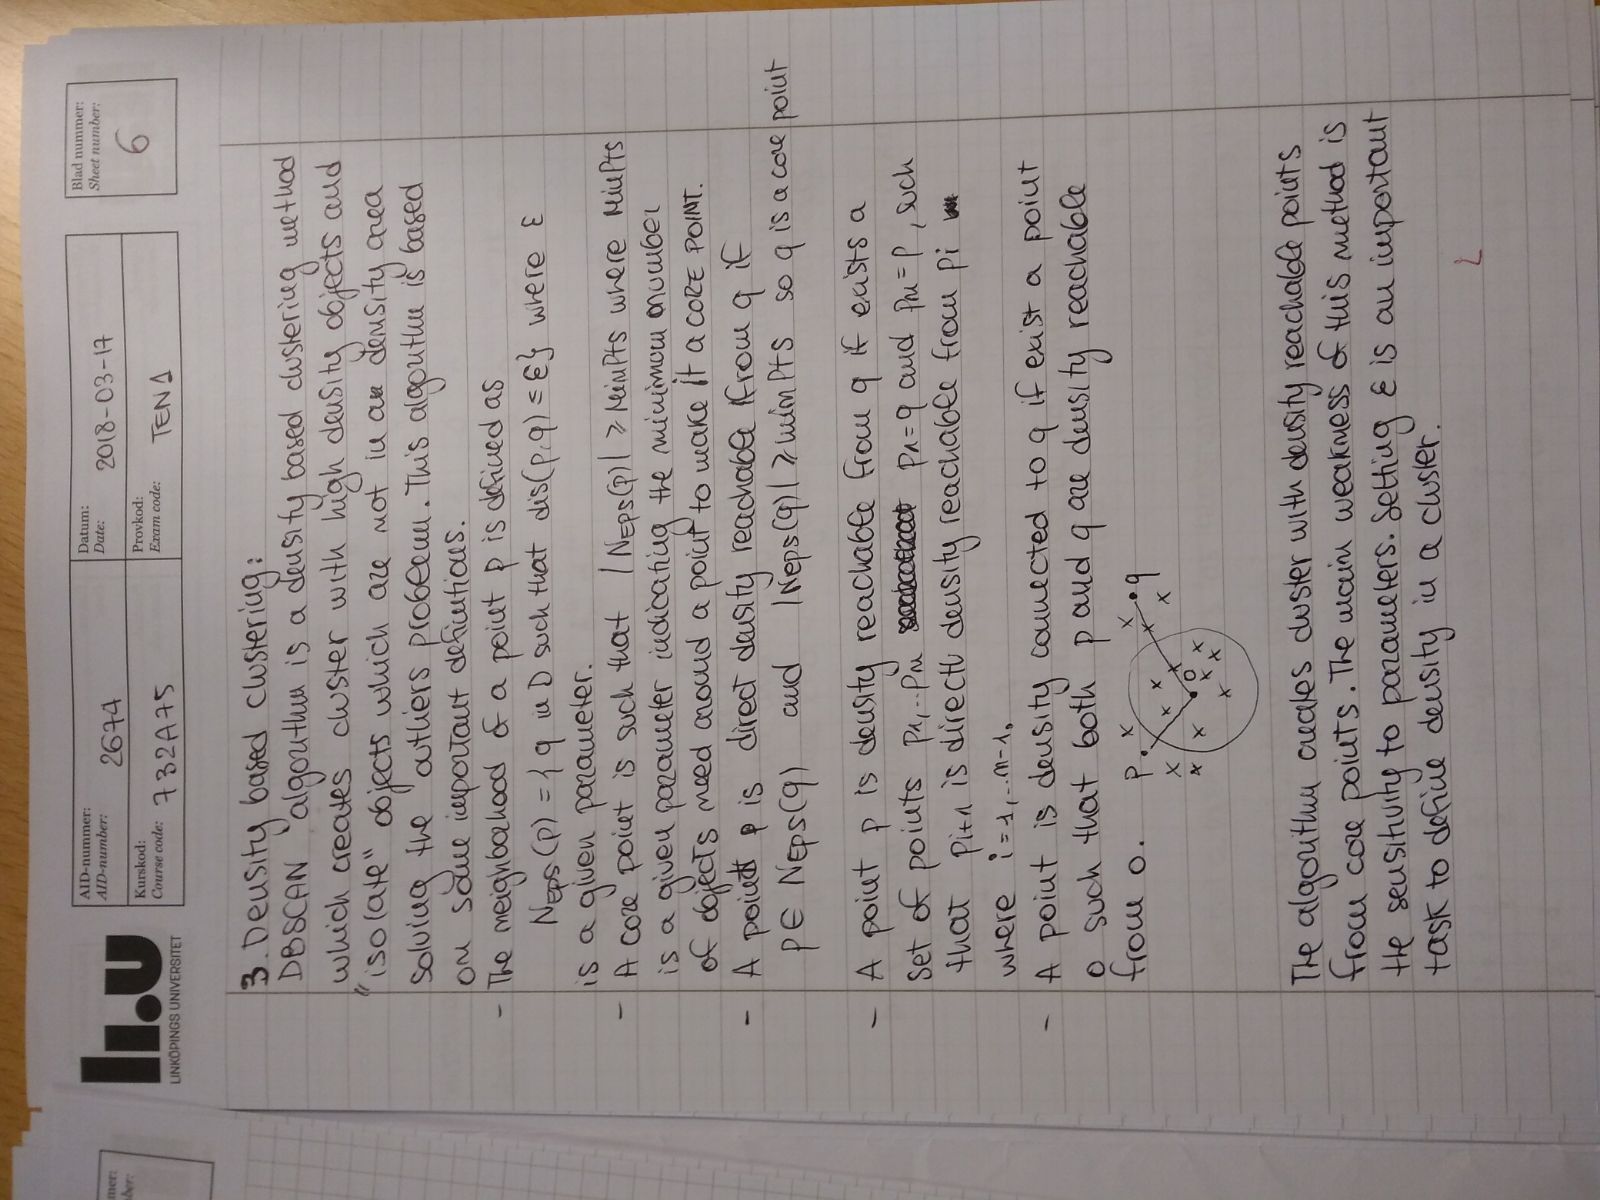 mer:
ber:
li.u
LINKÖPINGS UNIVERSITET
AID-nummer:
AID-number: 2674
Datum:
Date: 2018-03-17
Kurskod:
Course code: 732A75
Provkod:
Exam code: TEN1
Blad nummer:
Sheet number:
6
3. Density based clustering:
DBSCAN algorithm is a density based clustering method
which creates cluster with high density objects and
"isolate" objects which are not in a density area
solving the outliers problem. This algorithm is based
on some important definitions.
- The neighborhood of a point p is defined as
NEPS(p) = { q in D such that dis(p,q) ≤ ε} where ε
is a given parameter.
- A core point is such that |NEPS(p)| ≥ MinPts where MinPts
is a given parameter indicating the minimum number
of objects need around a point to make it a CORE POINT.
- A point p is direct density reachable from q if
p ∈ NEPS(q) and |NEPS(q)| ≥ minPts so q is a core point
- A point p is density reachable from q if exists a
set of points p1,..pn p1=q and pn=p, such
that pi+1 is directl density reachable from pi
where i=1,..n-1.
- A point is density connected to q if exist a point
o such that both p and q are density reachable
from o.
p q
o
The algorithm creates cluster with density reachable points
from core points. The main weakness of this method is
the sensitivity to parameters. Setting ε is an important
task to define density in a cluster.